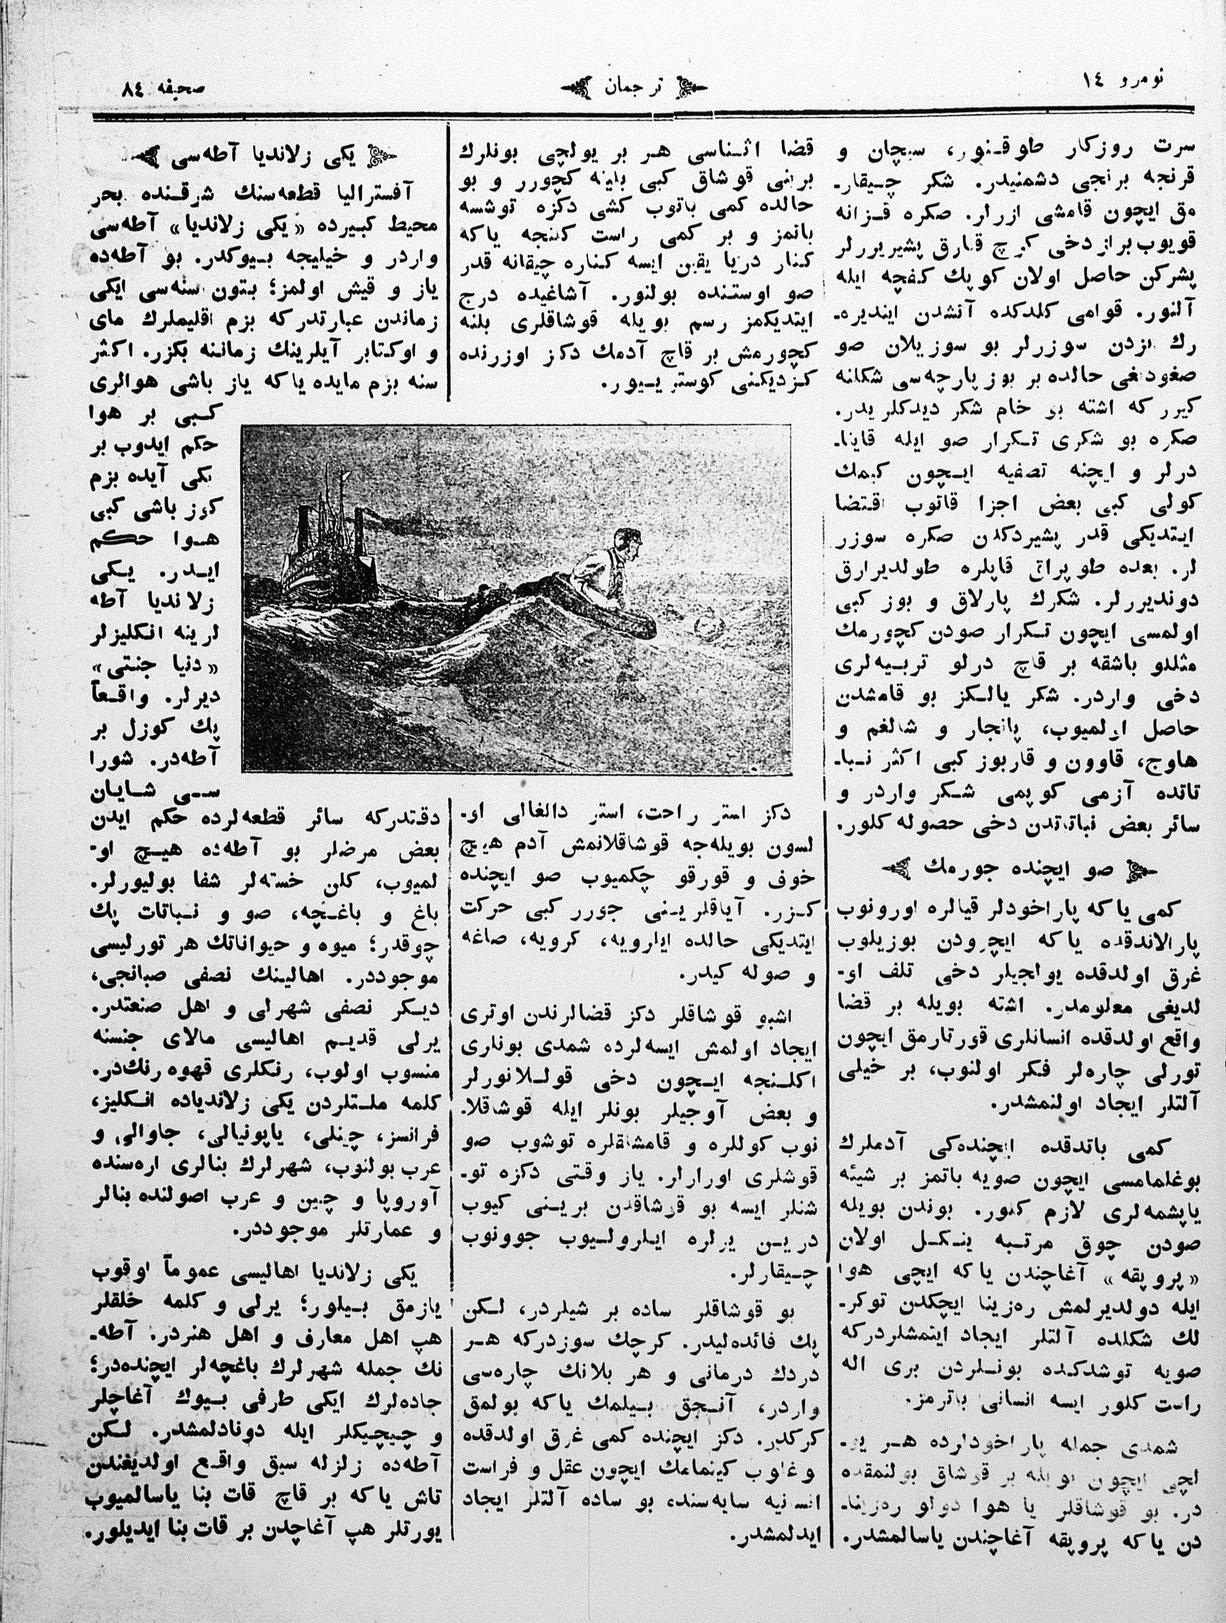 نومرو ١٤
ترجمان
صحیفه ٨٤
سرت روزکار طوقنور، سیچان و
قرنجه برنجی دشمنیدر. شکر چیقار-
مق ایچون قامشی ازرلر. صکره قزانه
قویوب براز دخی کرچ قارق پشیریررلر
پشرکن حاصل اولان کوپك کفچه ایله
آلنور. قوامی کلدکده آتشدن ایندیره-
رك بزدن سوزرلر بو سوزیلان صو
صغودیغی حالده بر بوز پارچه‌سی شکلنه
کیرر که اشته بو خام شکر دیدکلریدر.
صکره بو شکری تکرار صو ایله قاینا-
درلر و ایچنه تصفیه ایچون کیمك
کولی کبی بعض اجزا قاتوب اقتضا
ایتدیکی قدر پشیردکدن صکره سوزر
لر. بعده طوپراق قاپلره طولدیرارق
دوندیررلر. شکرك پارلاق و بوز کبی
اولمسی ایچون تکرار صودن کچورمك
مثللو باشقه بر قاچ درلو تربیه‌لری
دخی واردر. شکر یالکز بو قامشدن
حاصل اولمیوب، پانجار و شالغم و
هاوج، قاوون و قاربوز کبی اکثر نبا-
تاتده آزمی کوپمی شکر واردر و
سائر بعض نباتاتدن دخی حصوله کلور.
صو ایچنده جورمك
کمی یا که پاراخودلر قیالره اورونوب
پارالاندقده یا که ایچرودن بوزیلوب
غرق اولدقده یولجیلر دخی تلف او-
لدیغی معلومدر. اشته بویله بر قضا
واقع اولدقده انسانلری قورتارمق ایچون
تورلی چاره‌لر فکر اولنوب، بر خیلی
آلتلر ایجاد اولنمشدر.
کمی باتدقده ایچنده‌کی آدملرك
بوغلمامسی ایچون صویه باتمز بر شیئه
یاپشمه‌لری لازم کلور. بوندن بویله
صودن چوق مرتبه ینکل اولان
«پروپقه» آغاچندن یا که ایچی هوا
ایله دولدیرلمش ره‌زینا ایچکدن توکر-
لك شکلده آلتلر ایجاد ایتمشلردر که
صویه توشدکده بونلردن بری اله
راست کلور ایسه انسانی باترمز.
شمدی جمله پاراخودلرده هر یو-
لچی ایچون بویله بر قوشاق بولنمقده
در. بو قوشاقلر یا هوا دولو ره‌زینا-
دن یا که پروپقه آغاچندن یاسالمشدر.
قضا اثناسی هر بر یولچی بونلرك
برینی قوشاق کبی بلینه کچورر و بو
حالده کمی باتوب کشی دکزه توشسه
باتمز و بر کمی راست کلنجه یا که
کنار دریا یقین ایسه کناره چیقانه قدر
صو اوستنده بولنور. آشاغیده درج
ایتدیکمز رسم بویله قوشاقلری بلنه
کچورمش بر قاچ آدمك دکز اوزرنده
کزدیکنی کوستریور.
دکز استر راحت، استر دالغالی او-
لسون بویله‌جه قوشاقلانمش آدم هیچ
خوف و قورقو چکمیوب صو ایچنده
کزر. آیاقلرینی جورر کبی حرکت
ایتدیکی حالده ایلرویه، کرویه، صاغه
و صوله کیدر.
اشبو قوشاقلر دکز قضالرندن اوتری
ایجاد اولمش ایسه‌لرده شمدی بونلری
اکلنجه ایچون دخی قوللانورلر
و بعض آوجیلر بونلر ایله قوشاقلا-
نوب کوللره و قامشلقلره توشوب صو
قوشلری اورارلر. یاز وقتی دکزه تو-
شنلر ایسه بو قوشاقدن برینی کیوب
درین یرلره ایلرولیوب جوونوب
چیقارلر.
بو قوشاقلر ساده بر شیلردر، لکن
پك فائده‌لیدر. کرچك سوزدر که هر
دردك درمانی و هر بلانك چاره‌سی
واردر، آنجق بیلمك یا که بولمق
کرکدر. دکز ایچنده کمی غرق اولدقده
وغلوب کیتمامك ایچون عقل و فراست
انسانیه سایه‌سند، بو ساده آلتلر ایجاد
ایدلمشدر.
یکی زلاندیا آطه‌سی
آفسترالیا قطعه‌سنك شرقنده بحر
محیط کبیرده «یکی زلاندیا» آطه‌سی
واردر و خیلیجه بیوکدر. بو آطه‌ده
یاز و قیش اولمز؛ بتون سنه‌سی ایکی
زماندن عبارتدر که بزم اقلیملرك مای
و اوکتابر آیلرینك زماننه بکزر. اکثر
سنه بزم مایده یا که یاز باشی هوالری
کبی بر هوا
حکم ایدوب بر
ایکی آیده بزم
کوز باشی کبی
هوا حکم
ایدر. یکی
زلاندیا آطه
لرینه انکلیزلر
«دنیا جنتی»
دیرلر. واقعاً
پك کوزل بر
آطه‌در. شورا
سی شایان
دقتدر که سائر قطعه‌لرده حکم ایدن
بعض مرضلر بو آطه‌ده هیچ او-
لمیوب، کلن خسته‌لر شفا بولیورلر.
باغ و باغچه، صو و نباتات پك
چوقدر؛ میوه و حیواناتك هر تورلیسی
موجوددر. اهالینك نصفی صبانجی،
دیکر نصفی شهرلی و اهل صنعتدر.
یرلی قدیم اهالیسی مالای جنسنه
منسوب اولوب، رنکلری قهوه رنك‌در.
کلمه ملتلردن یکی زلاندیاده انکلیز،
فرانسز، چینلی، یاپونیالی، جاوالی و
عرب بولنوب، شهرلرك بنالری اره‌سنده
آوروپا و چین و عرب اصولنده بنالر
و عمارتلر موجوددر.
یکی زلاندیا اهالیسی عموماً اوقوب
یازمق بیلور؛ یرلی و کلمه خلقلر
هپ اهل معارف و اهل هنردر. آطه-
نك جمله شهرلرك باغچه‌لر ایچنده‌در؛
جاده‌لرك ایکی طرفی بیوك آغاچلر
و چیچیکلر ایله دونادلمشدر. لکن
آطه‌ده زلزله سبق واقع اولدیغندن
تاش یا که بر قاچ قات بنا یاسالمیوب
یورتلر هپ آغاچدن بر قات بنا ایدیلور.